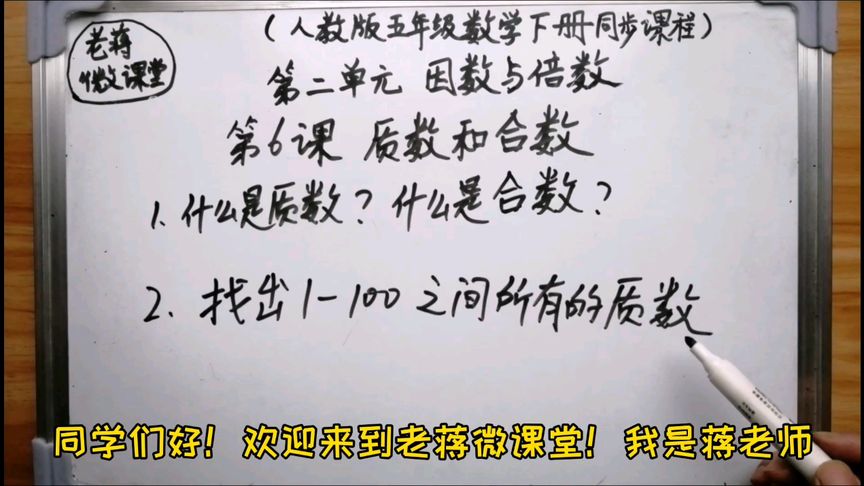 老蒋
微课堂
(人教版五年级数学下册同步课程)
第二单元 因数与倍数
第6课 质数和合数
1. 什么是质数? 什么是合数?
2. 找出1-100之间所有的质数
同学们好！欢迎来到老蒋微课堂！我是蒋老师